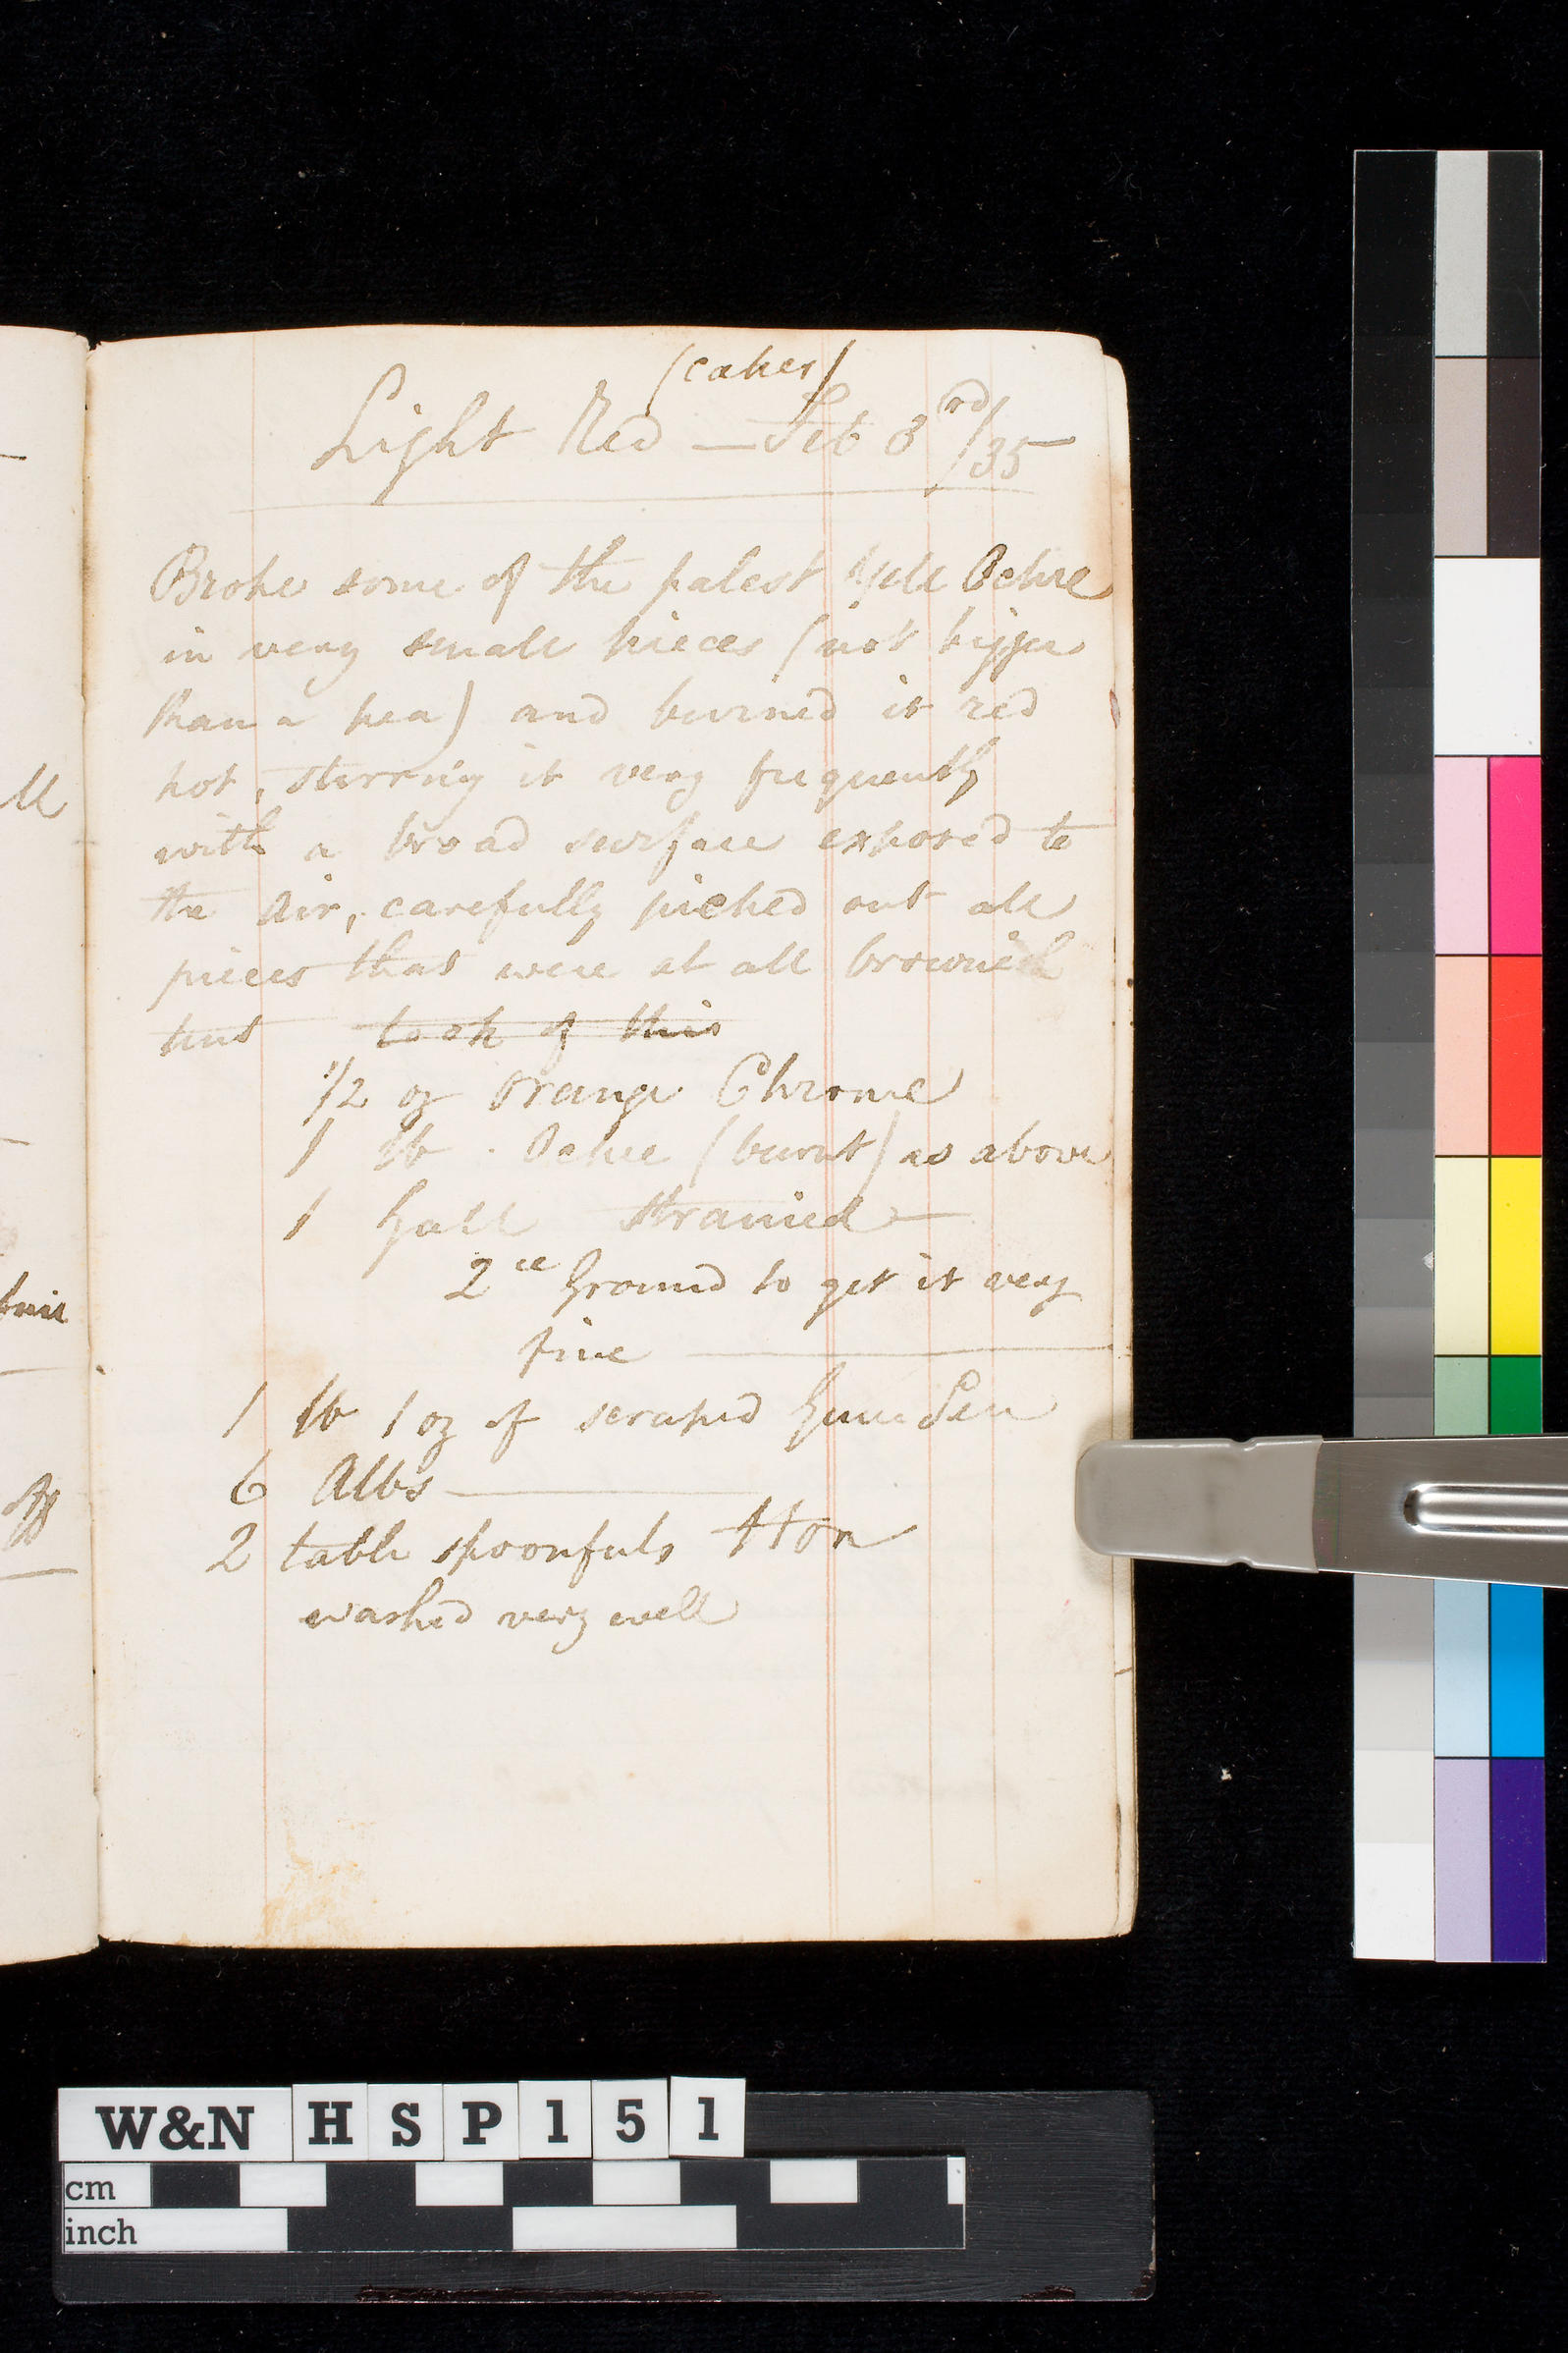 (cakes)
Light Red — Feb 3rd/35
Broke some of the palest Yell Ochre
in very small pieces (not bigger
than a pea) and burned it red
hot, stirring it very frequently
with a broad surface exposed to
the Air, carefully picked out all
pieces that were at all brownish
tint took of this
1/2 oz Orange Chrome
1 lb. Ochre (burnt) as above
1 Gall Strained —
2ce Ground to get it very
fine —
1 lb 1 oz of scraped Gum Sen
6 Albs —
2 table spoonfuls Hon
washed very well
W&N HSP151
cm
inch